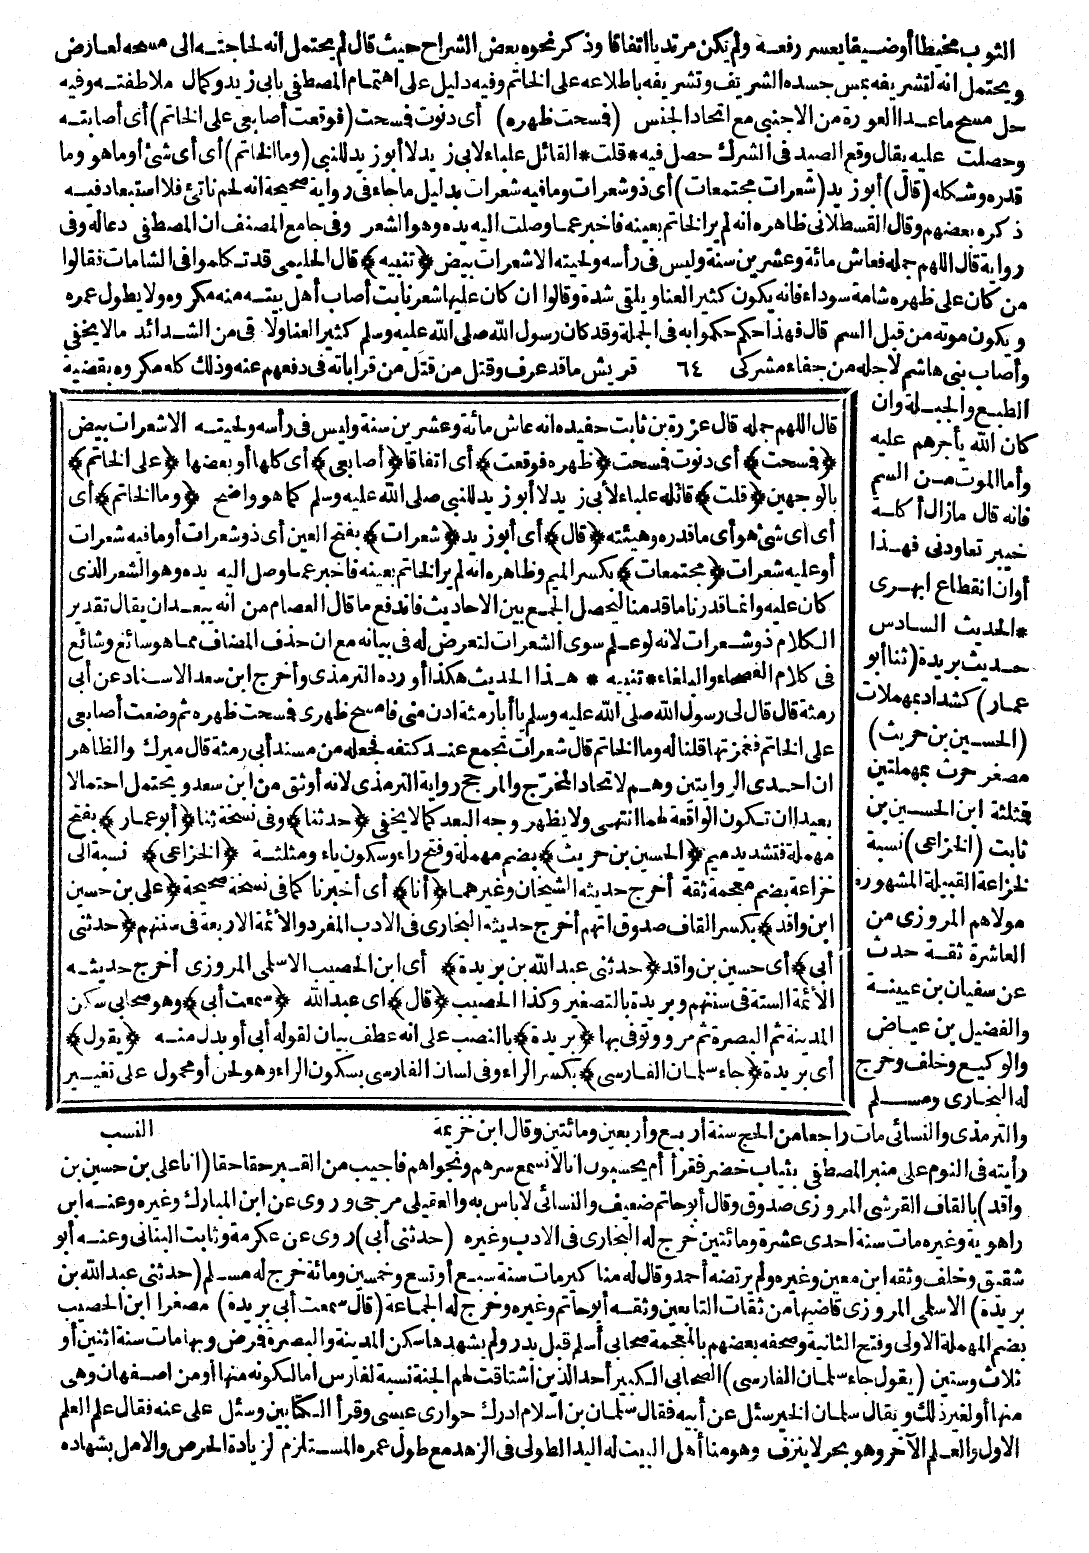 الثوب مخيطا أو ضيقا يعسر رفعه ولم يكن مرتديا اتفاقا وذكر نحوه بعض الشراح حيث قال لم يحتمل انه لحاجته الى مسحه لعارض
ويحتمل انه لتشريفه بمس جسده الشريف وتشريفه باطلاعه على الخاتم وفيه دليل على اهتمام المصطفى بابى زيد وكمال ملاطفته وفيه
حل مسح ما عدا العورة من الاجنبى مع اتحاد الجنس (فسحت ظهره) أى دنوت فسحت (فوقعت أصابعى على الخاتم) أى أصابته
وحصلت عليه يقال وقع الصيد فى الشرك حصل فيه * قلت * القائل علباء لابى زيد لا أبو زيد للنبى (وما الخاتم) أى أى شئ أو ما هو وما
قدره وشكله (قال) أبو زيد (شعرات مجتمعات) أى ذو شعرات وما فيه شعرات بدليل ما جاء فى رواية صحيحة انه لحم ناتئ فلا استبعاد فيه
ذكره بعضهم وقال القسطلانى ظاهره انه لم ير الخاتم بعينه فاخبر عما وصلت اليه يده وهو الشعر وفى جامع المصنف ان المصطفى دعا له وفى
رواية قال اللهم جمله فعاش مائة وعشرين سنة وليس فى رأسه ولحيته الا شعرات بيض ﴿تنبيه﴾ قال الحليمى قد تكلموا فى الشامات فقالوا
من كان على ظهره شامة سوداء فانه يكون كثير العنا ويلقى شدة وقالوا ان كان عليها شعر نابت أصاب أهل بيته منه مكروه ولا يطول عمره
ويكون موته من قبل السم قال فهذا حكم حكموا به فى الجملة وقد كان رسول الله صلى الله عليه وسلم كثير العنا ولاقى من الشدائد مالا يخفى
وأصاب بنى هاشم لاجله من جفاء مشركى ٦٤ قريش ما قد عرف وقتل من قتل من قراباته فى دفعهم عنه وذلك كله مكروه بقضية
الطبع والجبلة وان
كان الله يأجرهم عليه
وأما الموت من السم
فانه قال مازال أكلة
خيبر تعاودنى فهذا
أوان انقطاع ابهرى
*الحديث السادس
حديث بريدة (ثنا أبو
عمار) كشداد بمهملات
(الحسين بن حريث)
مصغر حرث بمهملتين
فثلثة ابن الحسين بن
ثابت (الخزاعى) نسبة
لخزاعة القبيلة المشهورة
مولاهم المروزى من
العاشرة ثقة حدث
عن سفيان بن عيينة
والفضيل بن عياض
والوكيع وخلف وخرج
له البخارى ومسلم
قال اللهم جمله قال عزرة بن ثابت حفيده انه عاش مائة وعشرين سنة وليس فى رأسه ولحيته الا شعرات بيض
﴿فسحت﴾ أى دنوت فسحت ﴿ظهره فوقعت﴾ أى اتفاقا ﴿أصابعى﴾ أى كلها أو بعضها ﴿على الخاتم﴾
بالوجهين ﴿قلت﴾ قائله علباء لأبى زيد لا أبو زيد للنبى صلى الله عليه وسلم كما هو واضح ﴿وما الخاتم﴾ أى
أى أى شئ هو أى ما قدره وهيئته ﴿قال﴾ أى أبو زيد ﴿شعرات﴾ بفتح العين أى ذو شعرات أو ما فيه شعرات
أو عليه شعرات ﴿مجتمعات﴾ بكسر الميم وظاهره انه لم ير الخاتم بعينه فاخبر عما وصل اليه يده وهو الشعر الذى
كان عليه وانما قدرنا ما قدمنا ليحصل الجمع بين الاحاديث فاندفع ما قال العصام من انه يبعد ان يقال تقدير
الكلام ذو شعرات لانه لو علم سوى الشعرات لتعرض له فى بيانه مع ان حذف المضاف مما هو سائغ وشائع
فى كلام الفصحاء والبلغاء * تنبيه * هذا الحديث هكذا أورده الترمذى وأخرج ابن سعد الاسناد عن أبى
رمثة قال قال لى رسول الله صلى الله عليه وسلم يا أبا رمثة ادن منى فامسح ظهرى فسحت ظهره ثم وضعت أصابعى
على الخاتم فغمزتها قلنا له وما الخاتم قال شعرات تجمع عند كتفه فجعله من مسند أبى رمثة قال ميرك والظاهر
ان احدى الروايتين وهم لاتحاد المخرج والمرجح رواية الترمذى لانه أوثق من ابن سعد ويحتمل احتمالا
بعيدا ان تكون الواقعة لهما انتهى ولا يظهر وجه البعد كما لا يخفى ﴿حدثنا﴾ وفى نسخة ثنا ﴿أبو عمار﴾ بفتح
مهملة فتشديد ميم ﴿الحسين بن حريث﴾ بضم مهملة وفتح راء وسكون ياء ومثلثة ﴿الخزاعى﴾ نسبة الى
خزاعة بضم معجمة ثقة أخرج حديثه الشيخان وغيرهما ﴿أنا﴾ أى أخبرنا كما فى نسخة صحيحة ﴿على بن حسين
ابن واقد﴾ بكسر القاف صدوق اتهم أخرج حديثه البخارى فى الادب المفرد والأئمة الاربعة فى سننهم ﴿حدثنى
أبى﴾ أى حسين بن واقد ﴿حدثنى عبد الله بن بريدة﴾ أى ابن الحصيب الاسلمى المروزى أخرج حديثه
الأئمة الستة فى سننهم وبريدة بالتصغير وكذا الحصيب ﴿قال﴾ أى عبد الله ﴿سمعت أبى﴾ وهو صحابى سكن
المدينة ثم البصرة ثم مرو وتوفى بها ﴿بريدة﴾ بالنصب على انه عطف بيان لقوله أبى أو بدل منه ﴿يقول﴾
أى بريدة ﴿جاء سلمان الفارسى﴾ بكسر الراء وفى لسان الفارسى بسكون الراء وهو لحن أو محمول على تغيير
النسب
والترمذى والنسائى مات راجعا من الحج سنة أربع وأربعين ومائتين وقال ابن خزيمة
رأيته فى النوم على منبر المصطفى بثياب خضر فقرأ أم يحسبون انا لا نسمع سرهم ونجواهم فاجيب من القبر حقا حقا (انا على بن حسين بن
واقد) بالقاف القرشى المروزى صدوق وقال أبو حاتم ضعيف والنسائى لا باس به والعقيلى مرجى وروى عن ابن المبارك وغيره وعنه ابن
راهويه وغيره مات سنة احدى عشرة ومائتين خرج له البخارى فى الادب وغيره (حدثنى أبى) روى عن عكرمة وثابت البنانى وعنه أبو
شقيق وخلف وثقه ابن معين وغيره ولم يرتضه أحمد وقال له مناكير مات سنة سبع أو تسع وخمسين ومائة خرج له مسلم (حدثنى عبد الله بن
بريدة) الاسلمى المروزى قاضيها من ثقات التابعين وثقه أبو حاتم وغيره وخرج له الجماعة (قال سمعت أبى بريدة) مصغرا ابن الحصيب
بضم المهملة الاولى وفتح الثانية وصحفه بعضهم بالمعجمة صحابى أسلم قبل بدر ولم يشهدها سكن المدينة والبصرة فرض وبها مات سنة اثنين أو
ثلاث وستين (يقول جاء سلمان الفارسى) الصحابى الكبير أحد الذين اشتاقت لهم الجنة نسبة لفارس اما لكونه منها أو من اصفهان وهى
منها أو لغير ذلك ويقال سلمان الخير سئل عن أبيه فقال سلمان بن اسلام ادرك حوارى عيسى وقرأ الكتابين وسئل على عنه فقال علم العلم
الاول والعلم الآخر وهو بحر لا ينزف وهو منا أهل البيت له اليد الطولى فى الزهد مع طول عمره المستلزم لزيادة الحرص والامل بشهادة